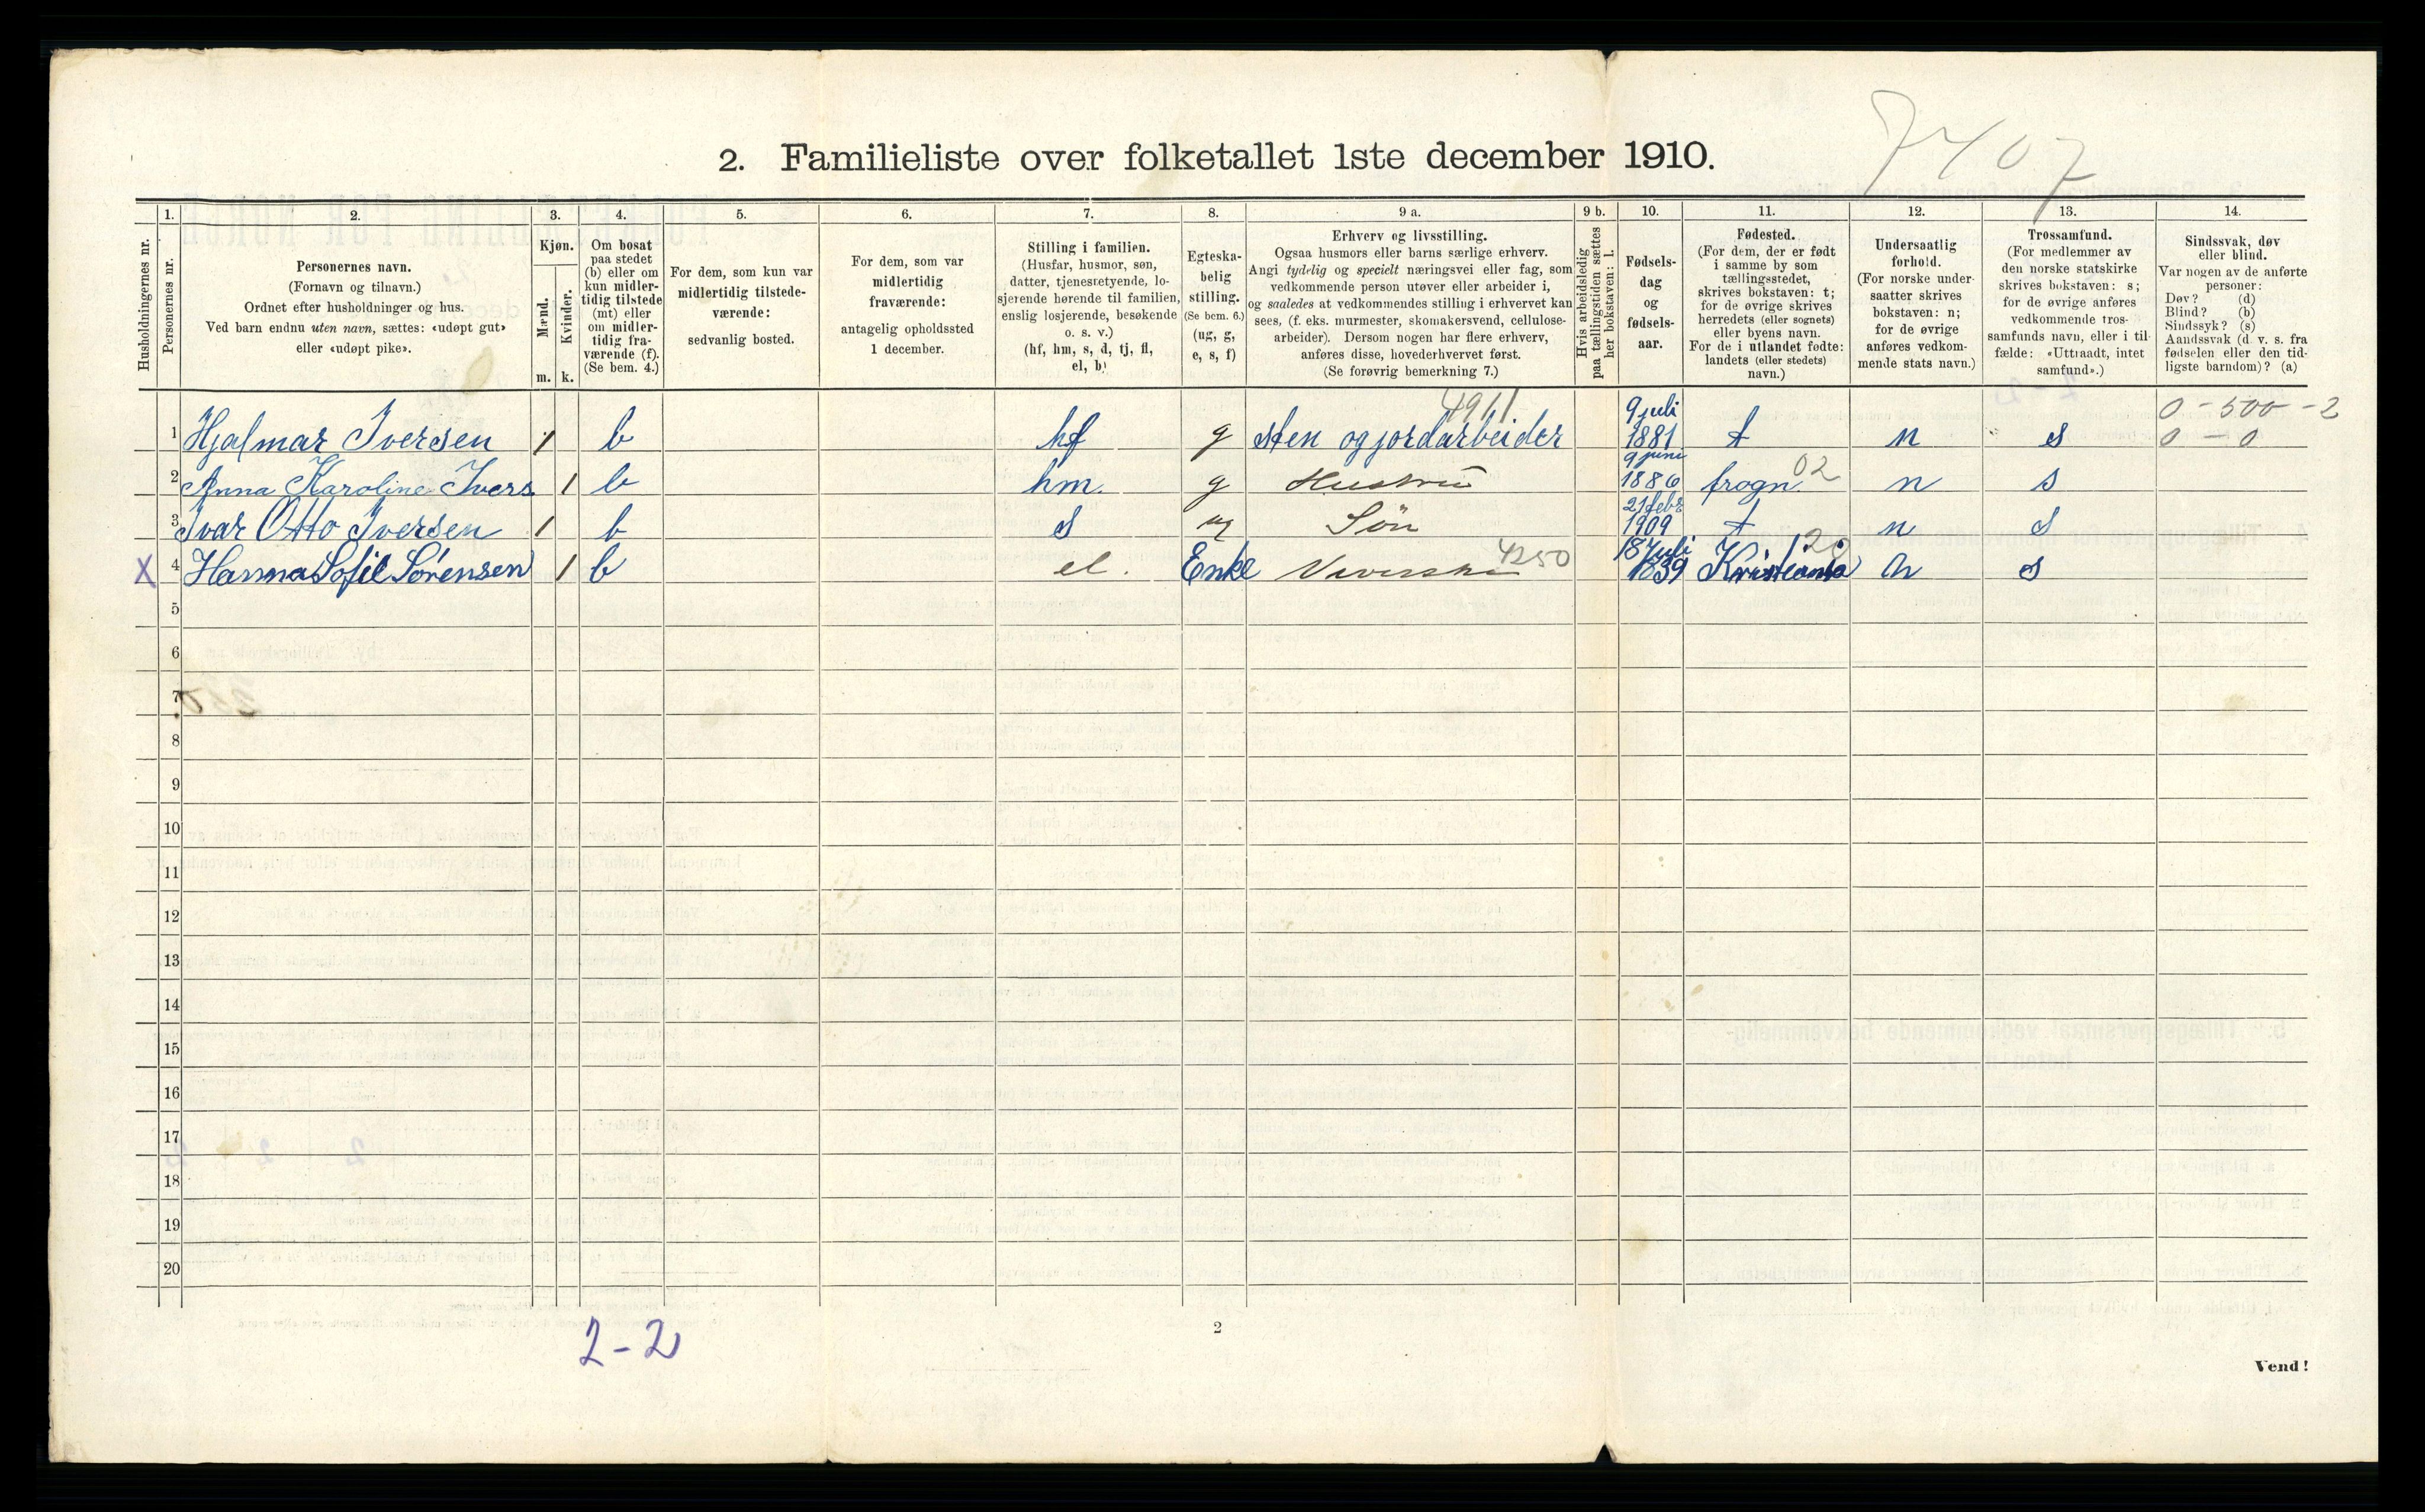 7407
2. Familieliste over folketallet 1ste december 1910.
Husholdningernes nr.
1.
Personernes nr.
2.
Personernes navn.
(Fornavn og tilnavn.)
Ordnet efter husholdninger og hus.
Ved barn endnu uten navn, sættes: «udøpt gut»
eller «udøpt pike».
3.
Kjøn.
Mænd.
Kvinder.
m. k.
4.
Om bosat
paa stedet
(b) eller om
kun midler-
tidig tilstede
(mt) eller
om midler-
tidig fra-
værende (f).
(Se bem. 4.)
5.
For dem, som kun var
midlertidig tilstede-
værende:
sedvanlig bosted.
6.
For dem, som var
midlertidig
fraværende:
antagelig opholdssted
1 december.
7.
Stilling i familien.
(Husfar, husmor, søn,
datter, tjenestetyende, lo-
sjerende hørende til familien,
enslig losjerende, besøkende
o. s. v.)
(hf, hm, s, d, tj, fl,
el, b)
8.
Egteska-
belig
stilling.
(Se bem. 6.)
(ug, g,
e, s, f)
9 a.
Erhverv og livsstilling.
Ogsaa husmors eller barns særlige erhverv.
Angi tydelig og specielt næringsvei eller fag, som
vedkommende person utøver eller arbeider i,
og saaledes at vedkommendes stilling i erhvervet kan
sees, (f. eks. murmester, skomakersvend, cellulose-
arbeider). Dersom nogen har flere erhverv,
anføres disse, hovederhvervet først.
(Se forøvrig bemerkning 7.)
9 b.
Hvis arbeidsledig
paa tællingstiden sættes
her bokstaven: l.
10.
Fødsels-
dag
og
fødsels-
aar.
11.
Fødested.
(For dem, der er født
i samme by som
tællingsstedet,
skrives bokstaven: t;
for de øvrige skrives
herredets (eller sognets)
eller byens navn.
For de i utlandet fødte:
landets (eller stedets)
navn.)
12.
Undersaatlig
forhold.
(For norske under-
saatter skrives
bokstaven: n;
for de øvrige
anføres vedkom-
mende stats navn.)
13.
Trossamfund.
(For medlemmer av
den norske statskirke
skrives bokstaven: s;
for de øvrige anføres
vedkommende tros-
samfunds navn, eller i til-
fælde: «Uttraadt, intet
samfund».)
14.
Sindssvak, døv
eller blind.
Var nogen av de anførte
personer:
Døv? (d)
Blind? (b)
Sindssyk? (s)
Aandssvak (d. v. s. fra
fødselen eller den tid-
ligste barndom)? (a)
4911 0 - 500 - 2
1 Hjalmar Iversen 1 b hf g sten og jordarbeider 9 juli 1881 t n s 0 - 0
2 Anna Karoline Ivers 1 b hm. g Hustru 9 juni 1886 frogn 02 n s
3 Ivar Otto Iversen 1 b s ug Sön 21 febr 1909 t n s
X 4 Hanna Sofie Sörensen 1 b el. Enke 4250 18 Juli 1839 Kristiania n s
5
6
7
8
9
10
11
12
13
14
15
16
17
18
19
20
2-2
2
Vend!